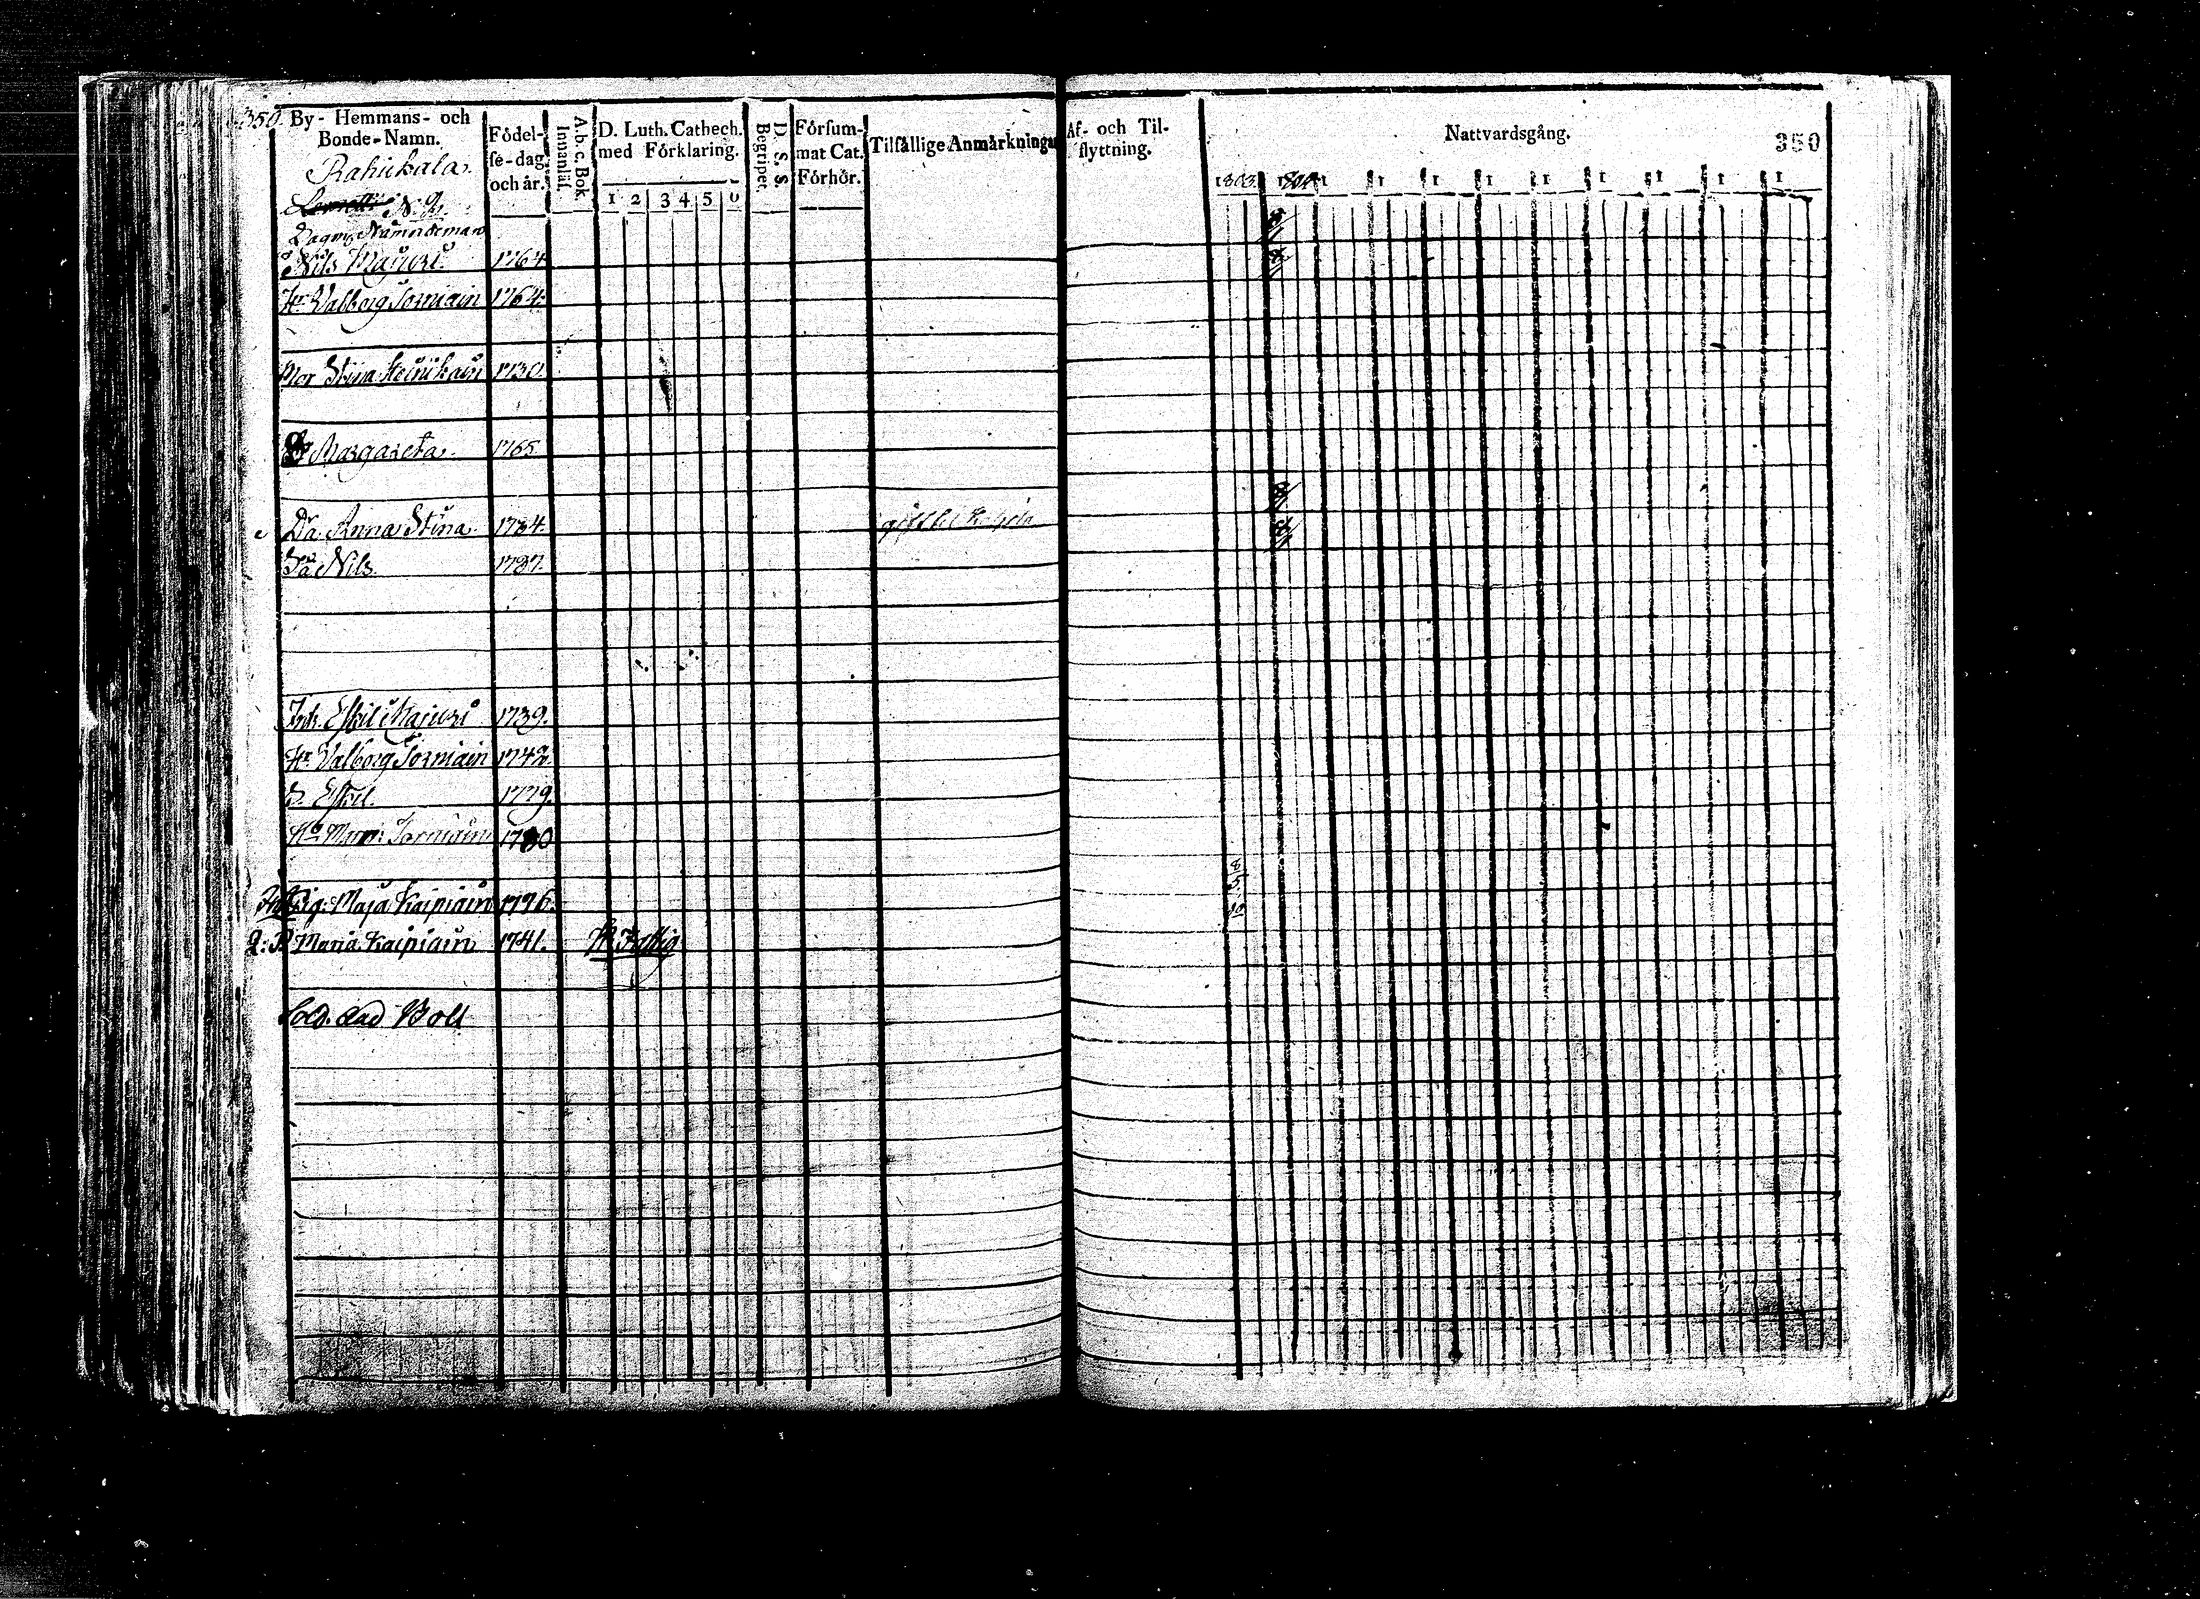 350. By- Hemmans- och Bonde-Namn.
Födel-se-dag och år.
A.b.c. Bok. Innanläs.
D. Luth. Cathech. med Förklaring.
1 2 3 4 5 0
D. S. S. Begriper.
Försum-mat Cat. Förhör.
Tilfällige Anmärkningar
Af- och Til-flyttning.
Nattvardsgång.
350
1803. 1804 1 1 1 1 1 1 1 1 1
Rahikala.
N. 2.
Nämndeman
Nils Majuri 1764
Hr Valborg Torniain 1764.
Mor Stina Heinikain 1730.
Margareta. 1765
Da. Anna Stina. 1784. gift til
Nils. 1787.
Inh. Eskil Majuri 1739.
Hr Valborg Torniain 1742
S. Eskil. 1779.
Torniain 1780
Maja Kaipiain 1776.
Maria Kaipiain 1741. Fattig
Sold. Bolt